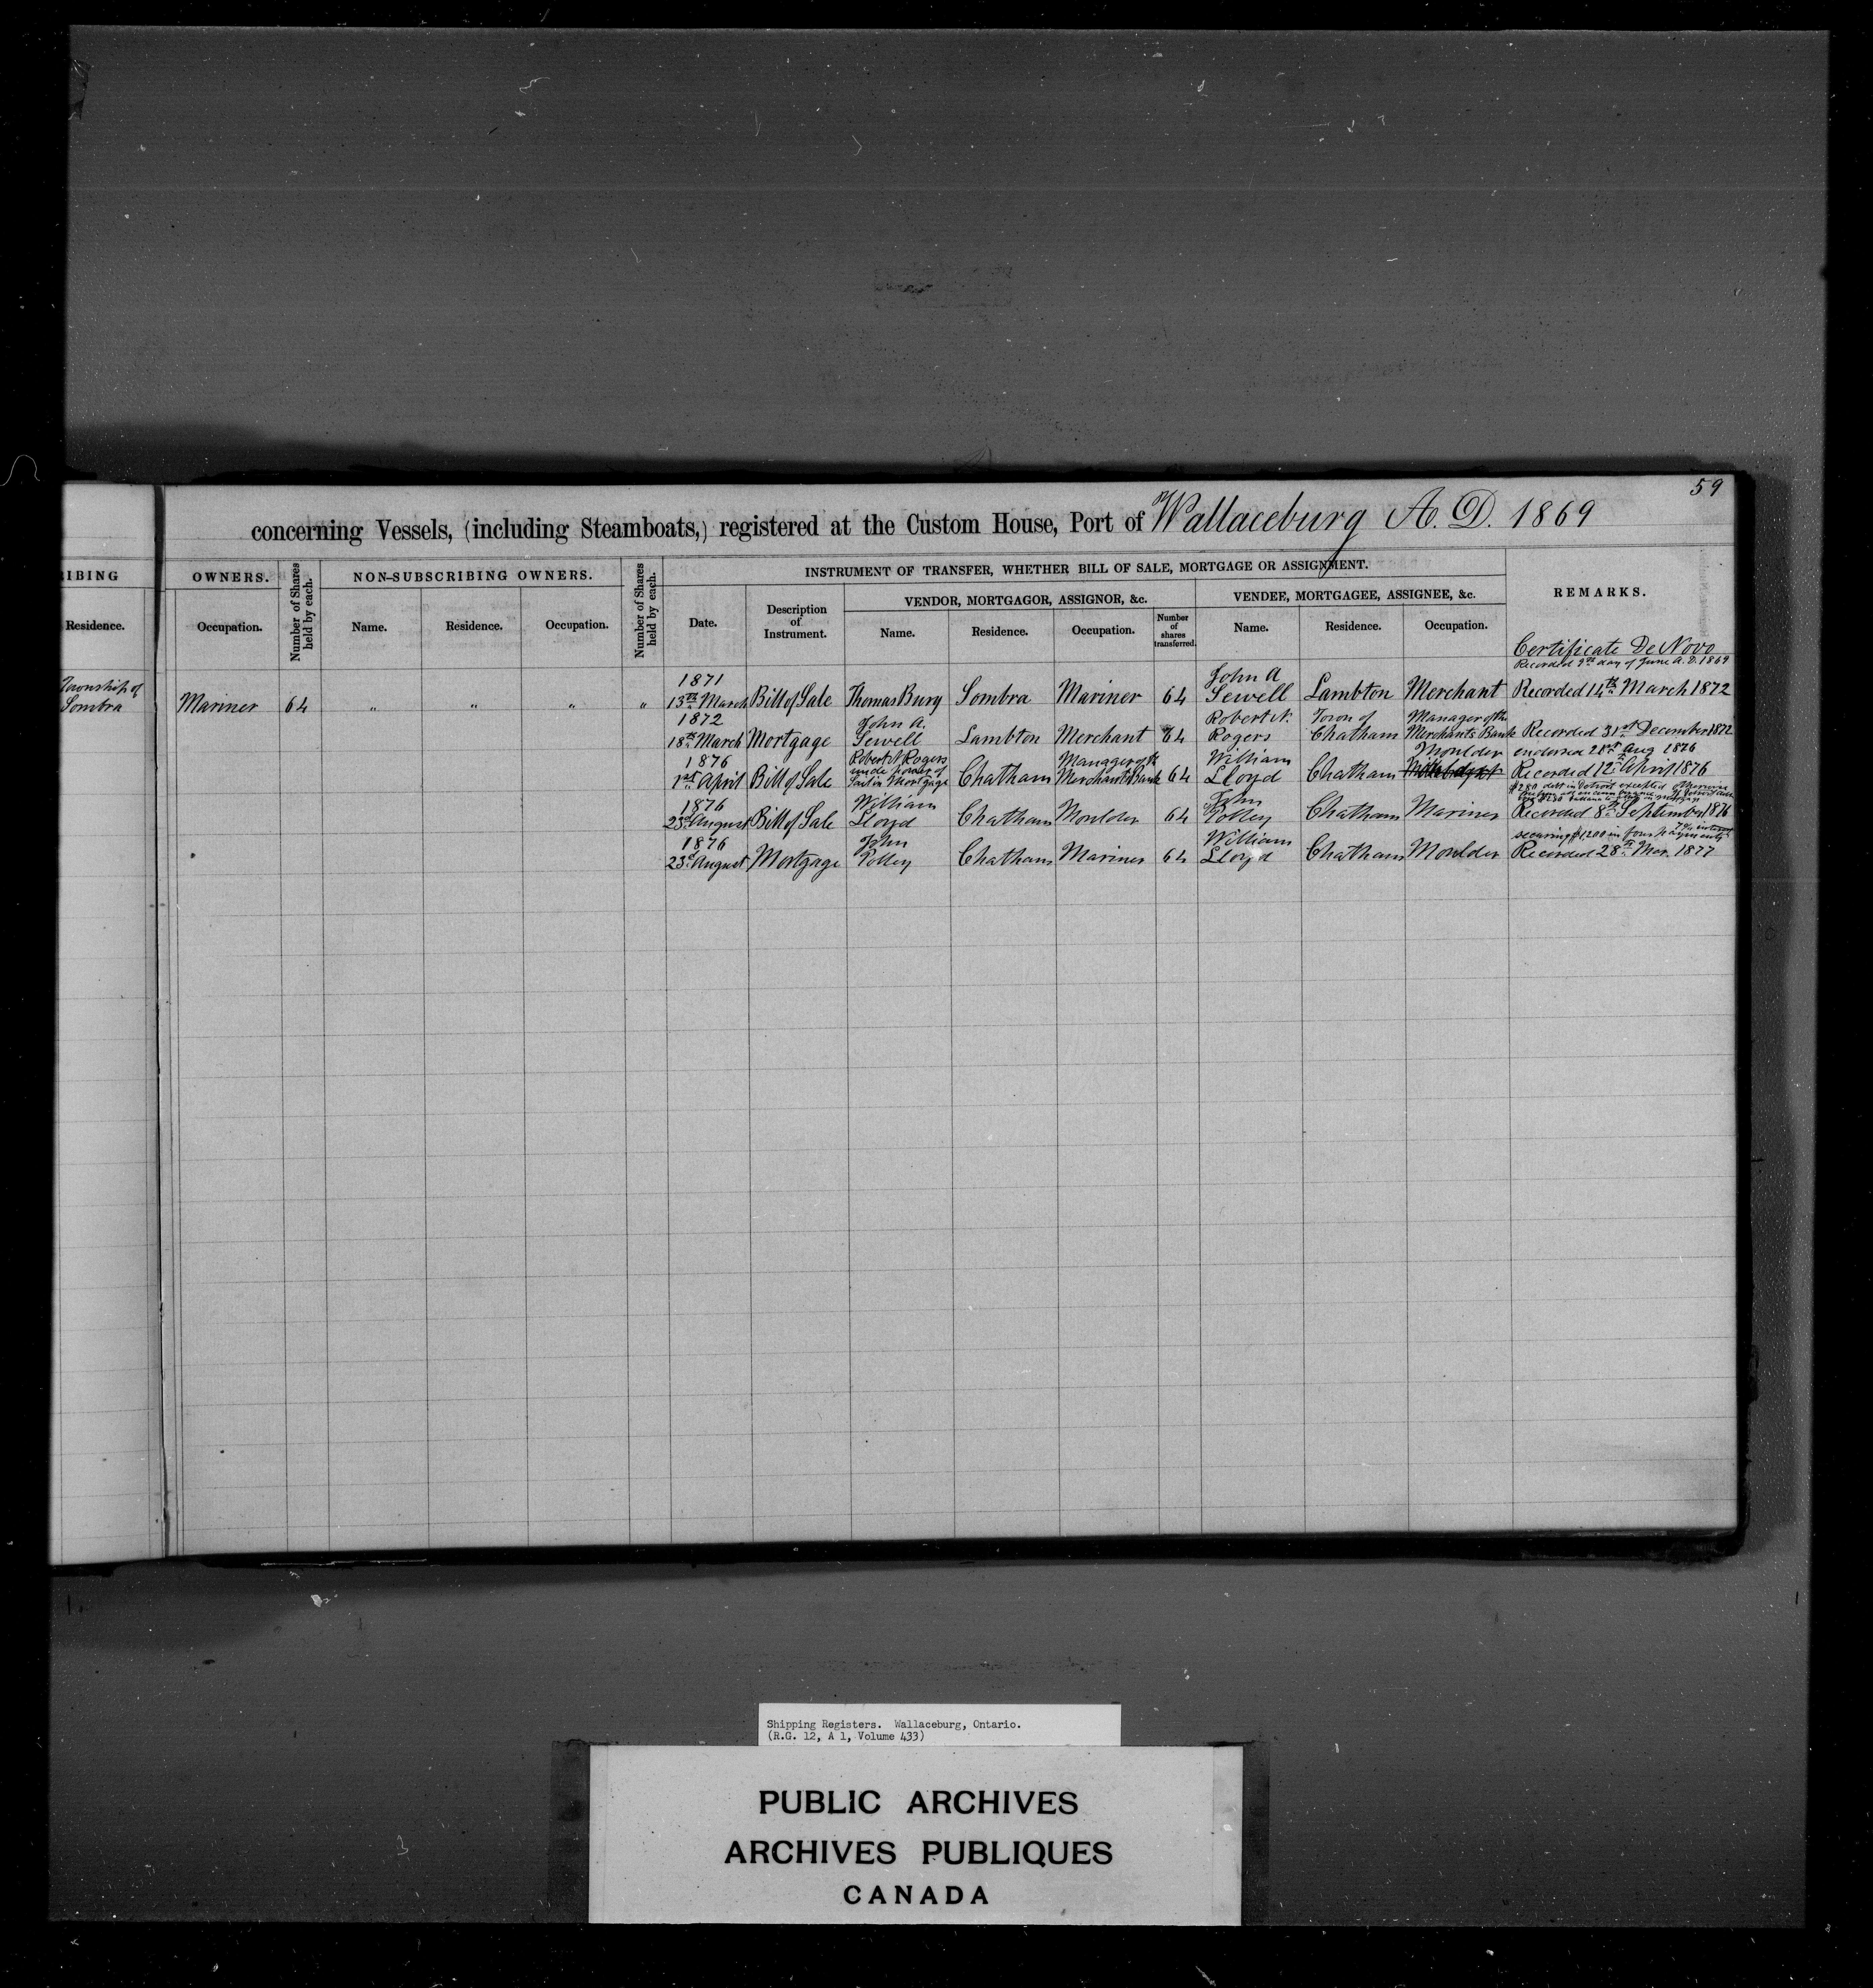 59
concerning Vessels, (including Steamboats,) registered at the Custom House, Port of Wallaceburg A. D. 1869
RIBING
OWNERS.
Number of Shares held by each.
NON-SUBSCRIBING OWNERS.
Number of Shares held by each.
INSTRUMENT OF TRANSFER, WHETHER BILL OF SALE, MORTGAGE OR ASSIGNMENT.
REMARKS.
VENDOR, MORTGAGOR, ASSIGNOR, &c.
VENDEE, MORTGAGEE, ASSIGNEE, &c.
Residence.
Occupation.
Name.
Residence.
Occupation.
Date.
Description of Instrument.
Name.
Residence.
Occupation.
Number of shares transferred.
Name.
Residence.
Occupation.
Certificate De Novo
Recorded 9th day of June A.D. 1869
Township of Sombra Mariner 64 " " " "
1871 13th March Bill of Sale Thomas Burg Sombra Mariner 64 John A Sewell Lambton Merchant Recorded 14th March 1872
1872 18th March Mortgage John A. Sewell Lambton Merchant 64 Robert N. Rogers Town of Chatham Manager of the Merchants Bank Recorded 31st December 1872
endorsed 21st Aug 1876
1876 1st April Bill of Sale Robert N Rogers under power of Sail in Mortgage Chatham Manager of the Merchants Bank 64 William Lloyd Chatham Moulder Recorded 12th April 1876
$280 debt in Detroit excepted
1876 23d August Bill of Sale William Lloyd Chatham Moulder 64 John Polley Chatham Mariner Recorded 8th September 1876
securing $1200 in four payments 7% interest
1876 23d August Mortgage John Polley Chatham Mariner 64 William Lloyd Chatham Moulder Recorded 28th Mar. 1877
Shipping Registers. Wallaceburg, Ontario.
(R.G. 12, A 1, Volume 433)
PUBLIC ARCHIVES
ARCHIVES PUBLIQUES
CANADA